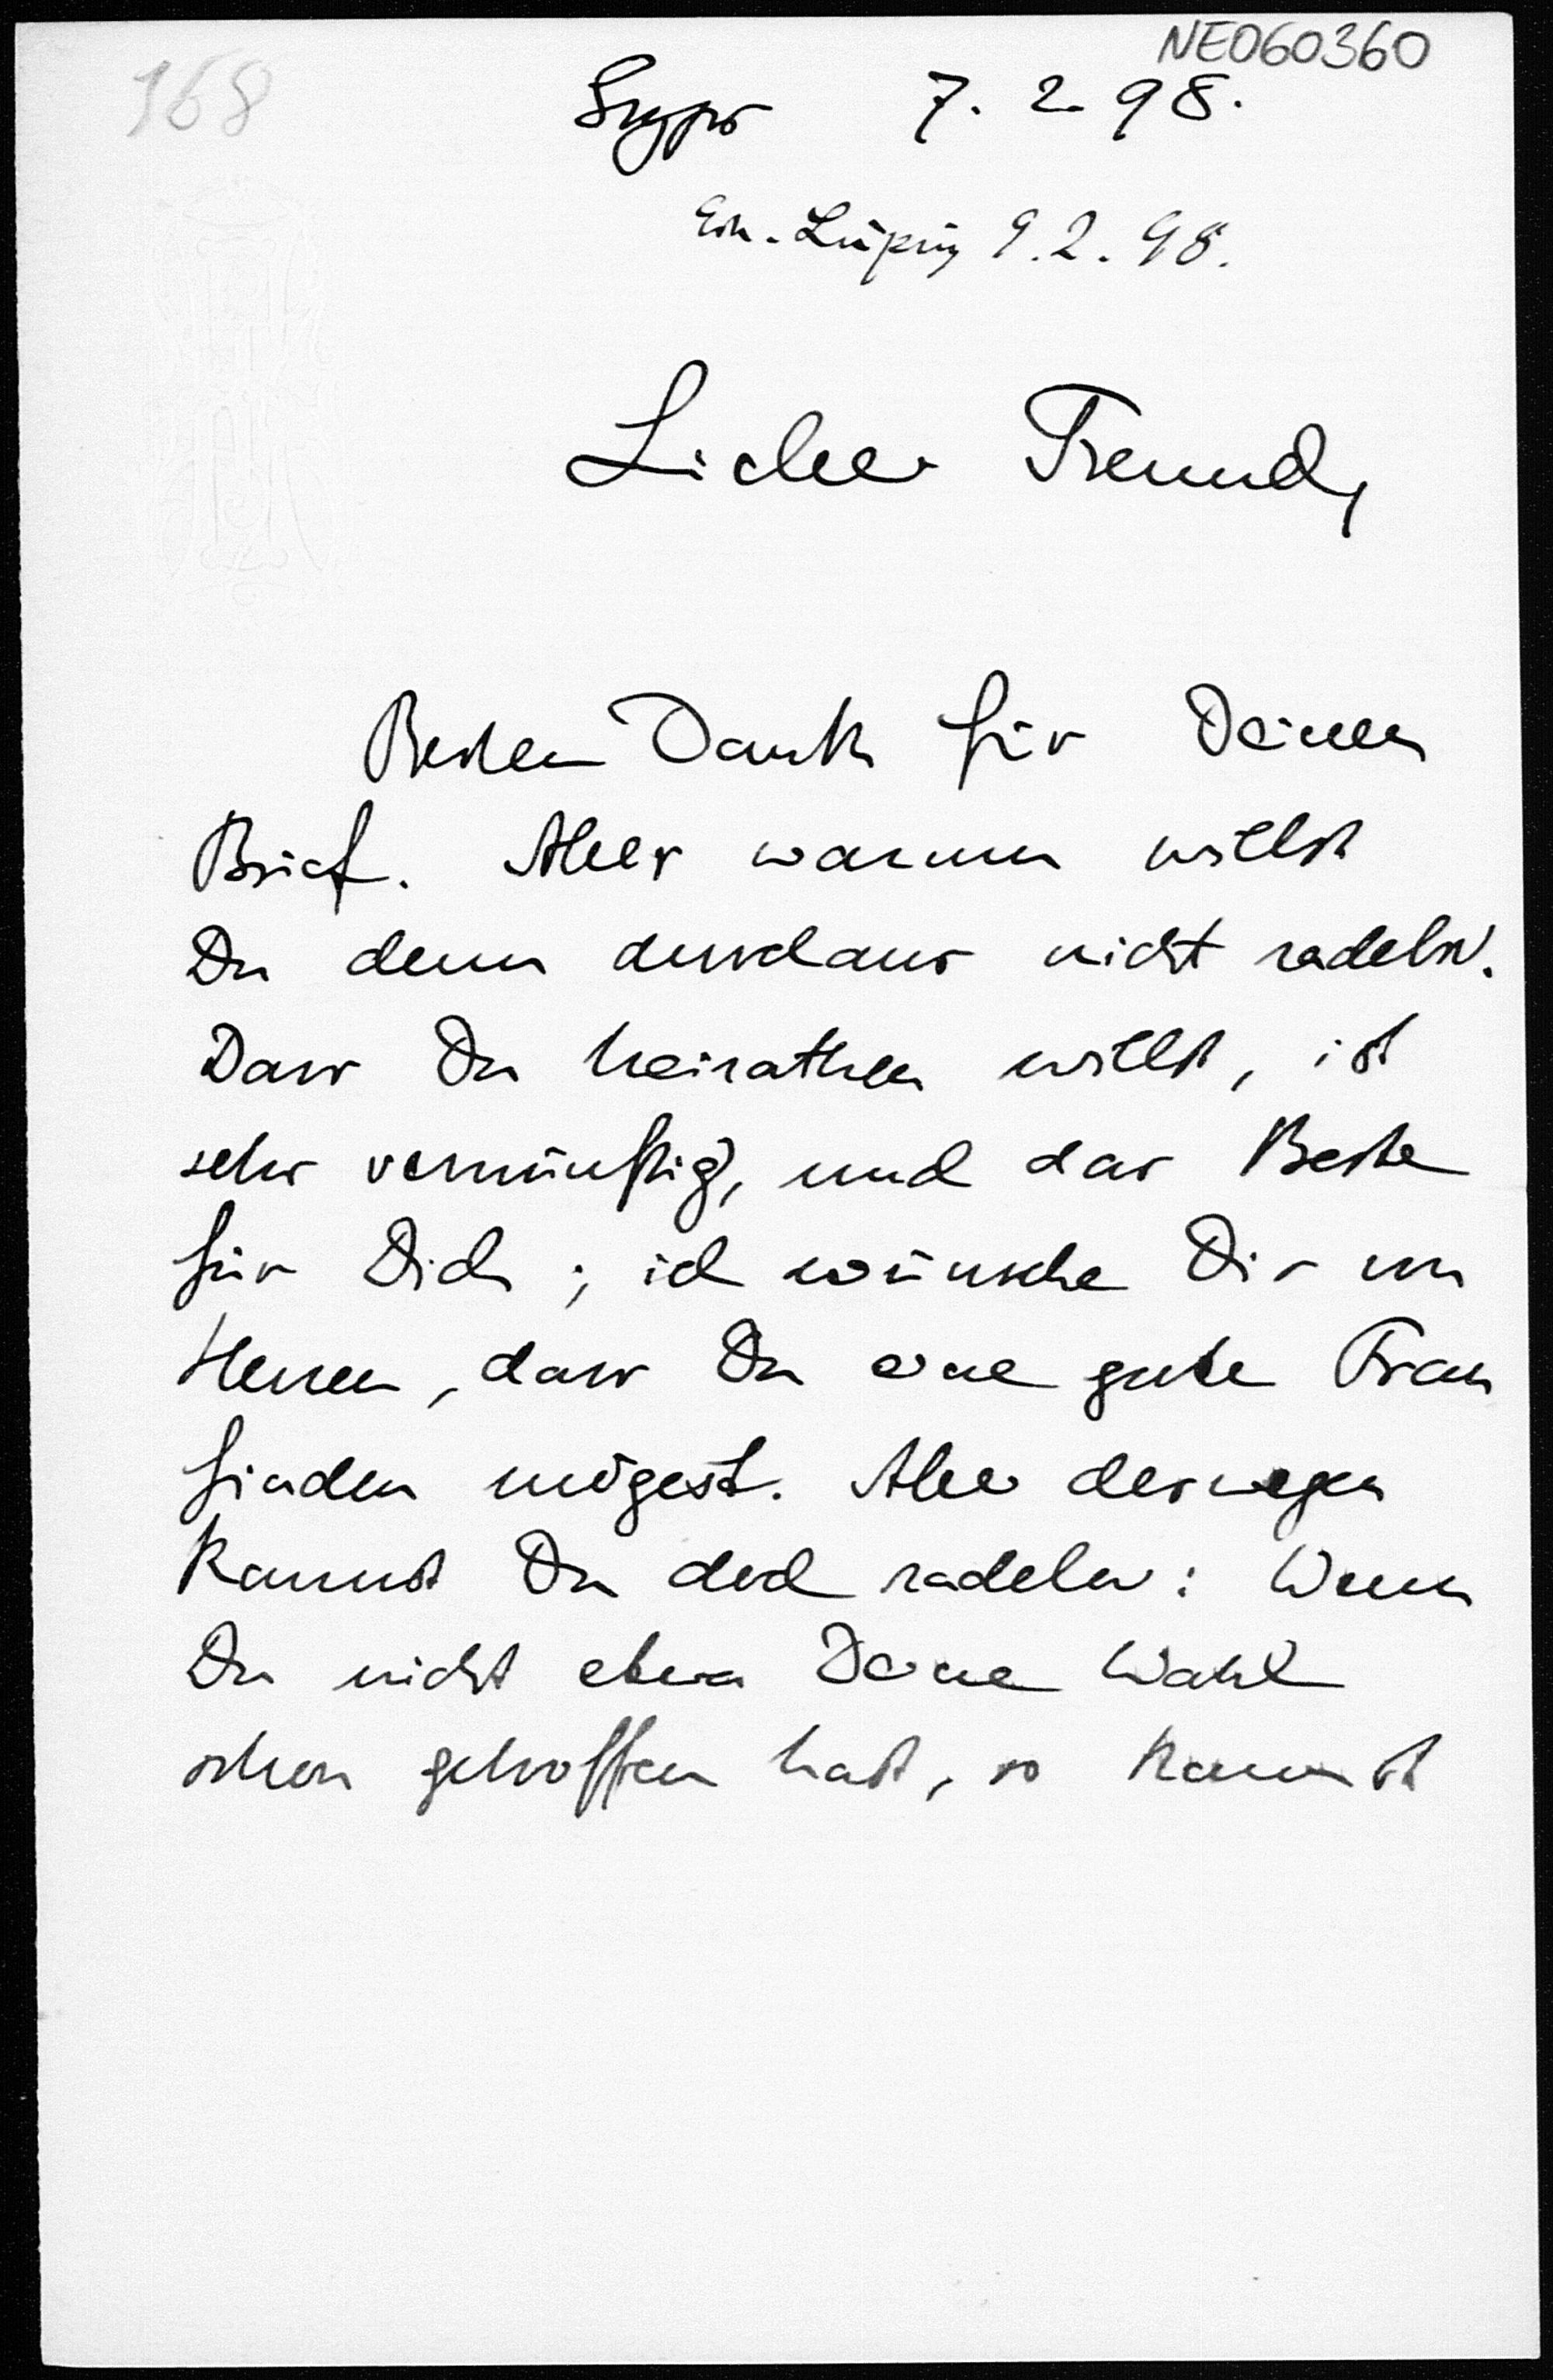 NE060360
168
7. 2. 98.
Leipzig 9. 2. 98.
Lieber Freund,
Besten Dank für Deinen
Brief. Aber warum willst
Du denn durchaus nicht radeln.
Dass Du heirathen willst, ist
sehr vernünftig, und das Beste
für Dich; ich wünsche Dir von
Herzen, dass Du eine gute Frau
finden mögest. Aber deswegen
kannst Du doch radeln: Wenn
Du nicht etwa Deine Wahl
schon getroffen hast, so kannst